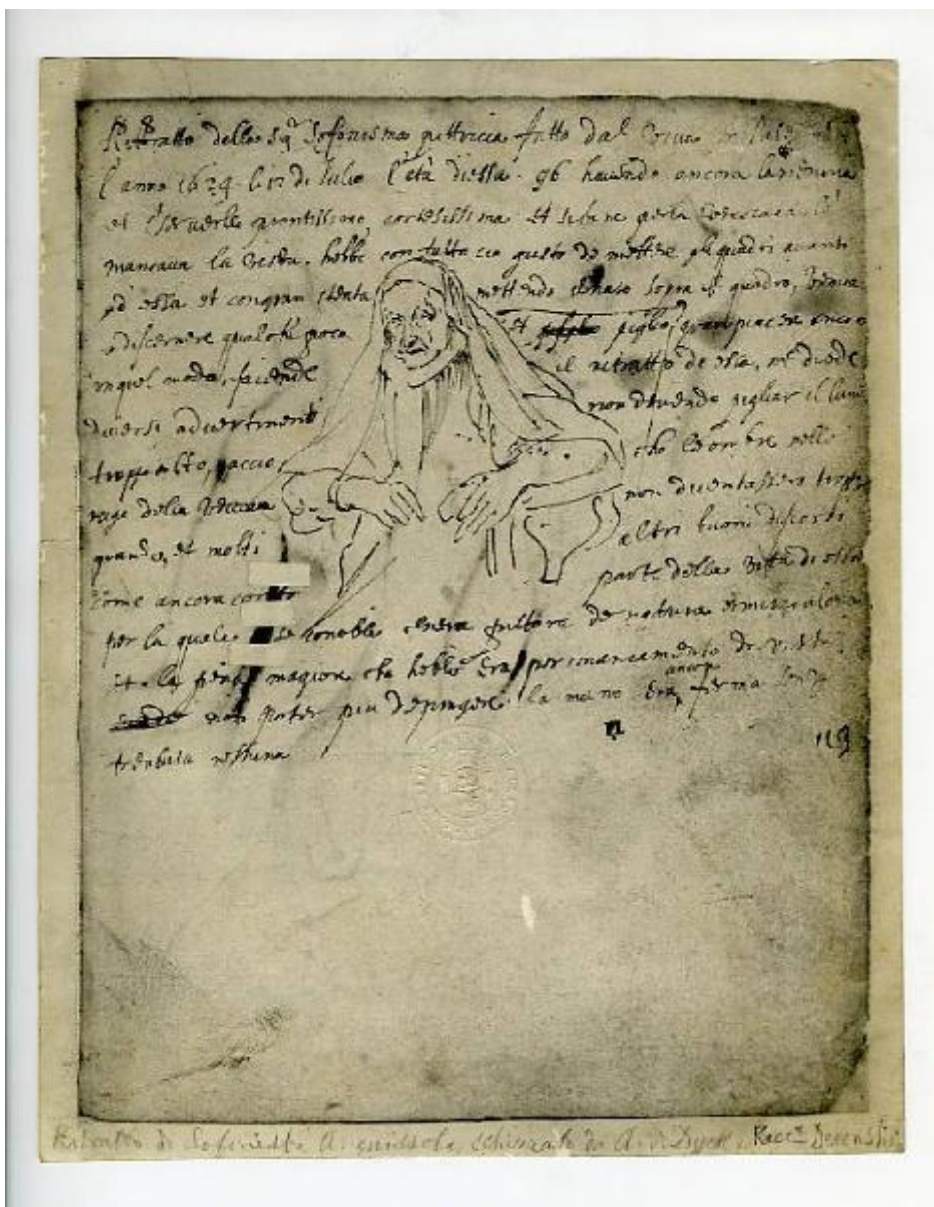 Rittratto della Sig.ra Sofonisma pittricia fatto dal vivo in
l'anno 1624 li 12 di Julio l'età di essa 96 havendo ancora la memoria
et cervello prontissimo, cortesissima et sebene per la vecciaia
mancaua la vista, hebbe con tutto cio gusto de mettere gli quadri auanti
ad essa et con gran stenta mettendo il naso sopra il quadro, venne
a discernere qualche poco et piglio gran piacere ancora
in quel modo, facendo il ritratto de essa, me diede
diuersi aduertimenti non deuendo pigliar il lume
troppo alto, accio che le ombre nelle
ruge della vecciaia non diuentassero troppo
grande, et molti altri buoni discorsi
come ancora conto parte della vita di essa
per la quale se conobbe che era pittora de natura et miraculosa
et la pena magiore che hebbe era per mancamento di vista
non poter piu depingere la mano era ancora ferma senza
tremula nessuna
Ritratto di Sofonisba Anguissola schizzato da A. V. Dyck